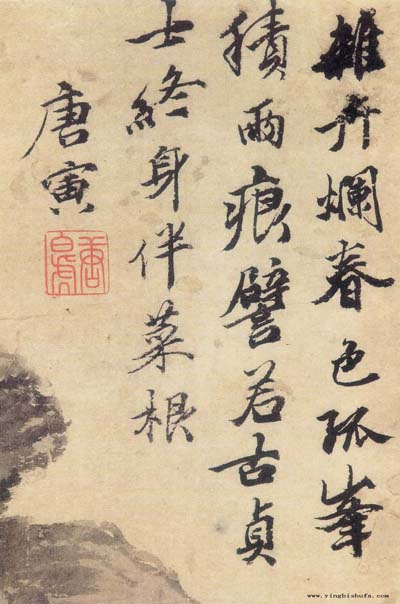 雜卉爛春色孤峯
積雨痕譬若古貞
士終身伴菜根
唐寅
唐寅
www.yingbishufa.com